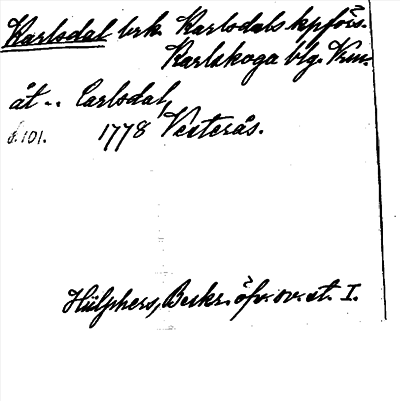 Karlsdal brk. Karlsdals kpförs.
Karlskoga blg. Vrm.
åt .. Carlsdal,
s. 101. 1778 Vesterås.
Hülphers, Beskr. öfv. sv. st. I.